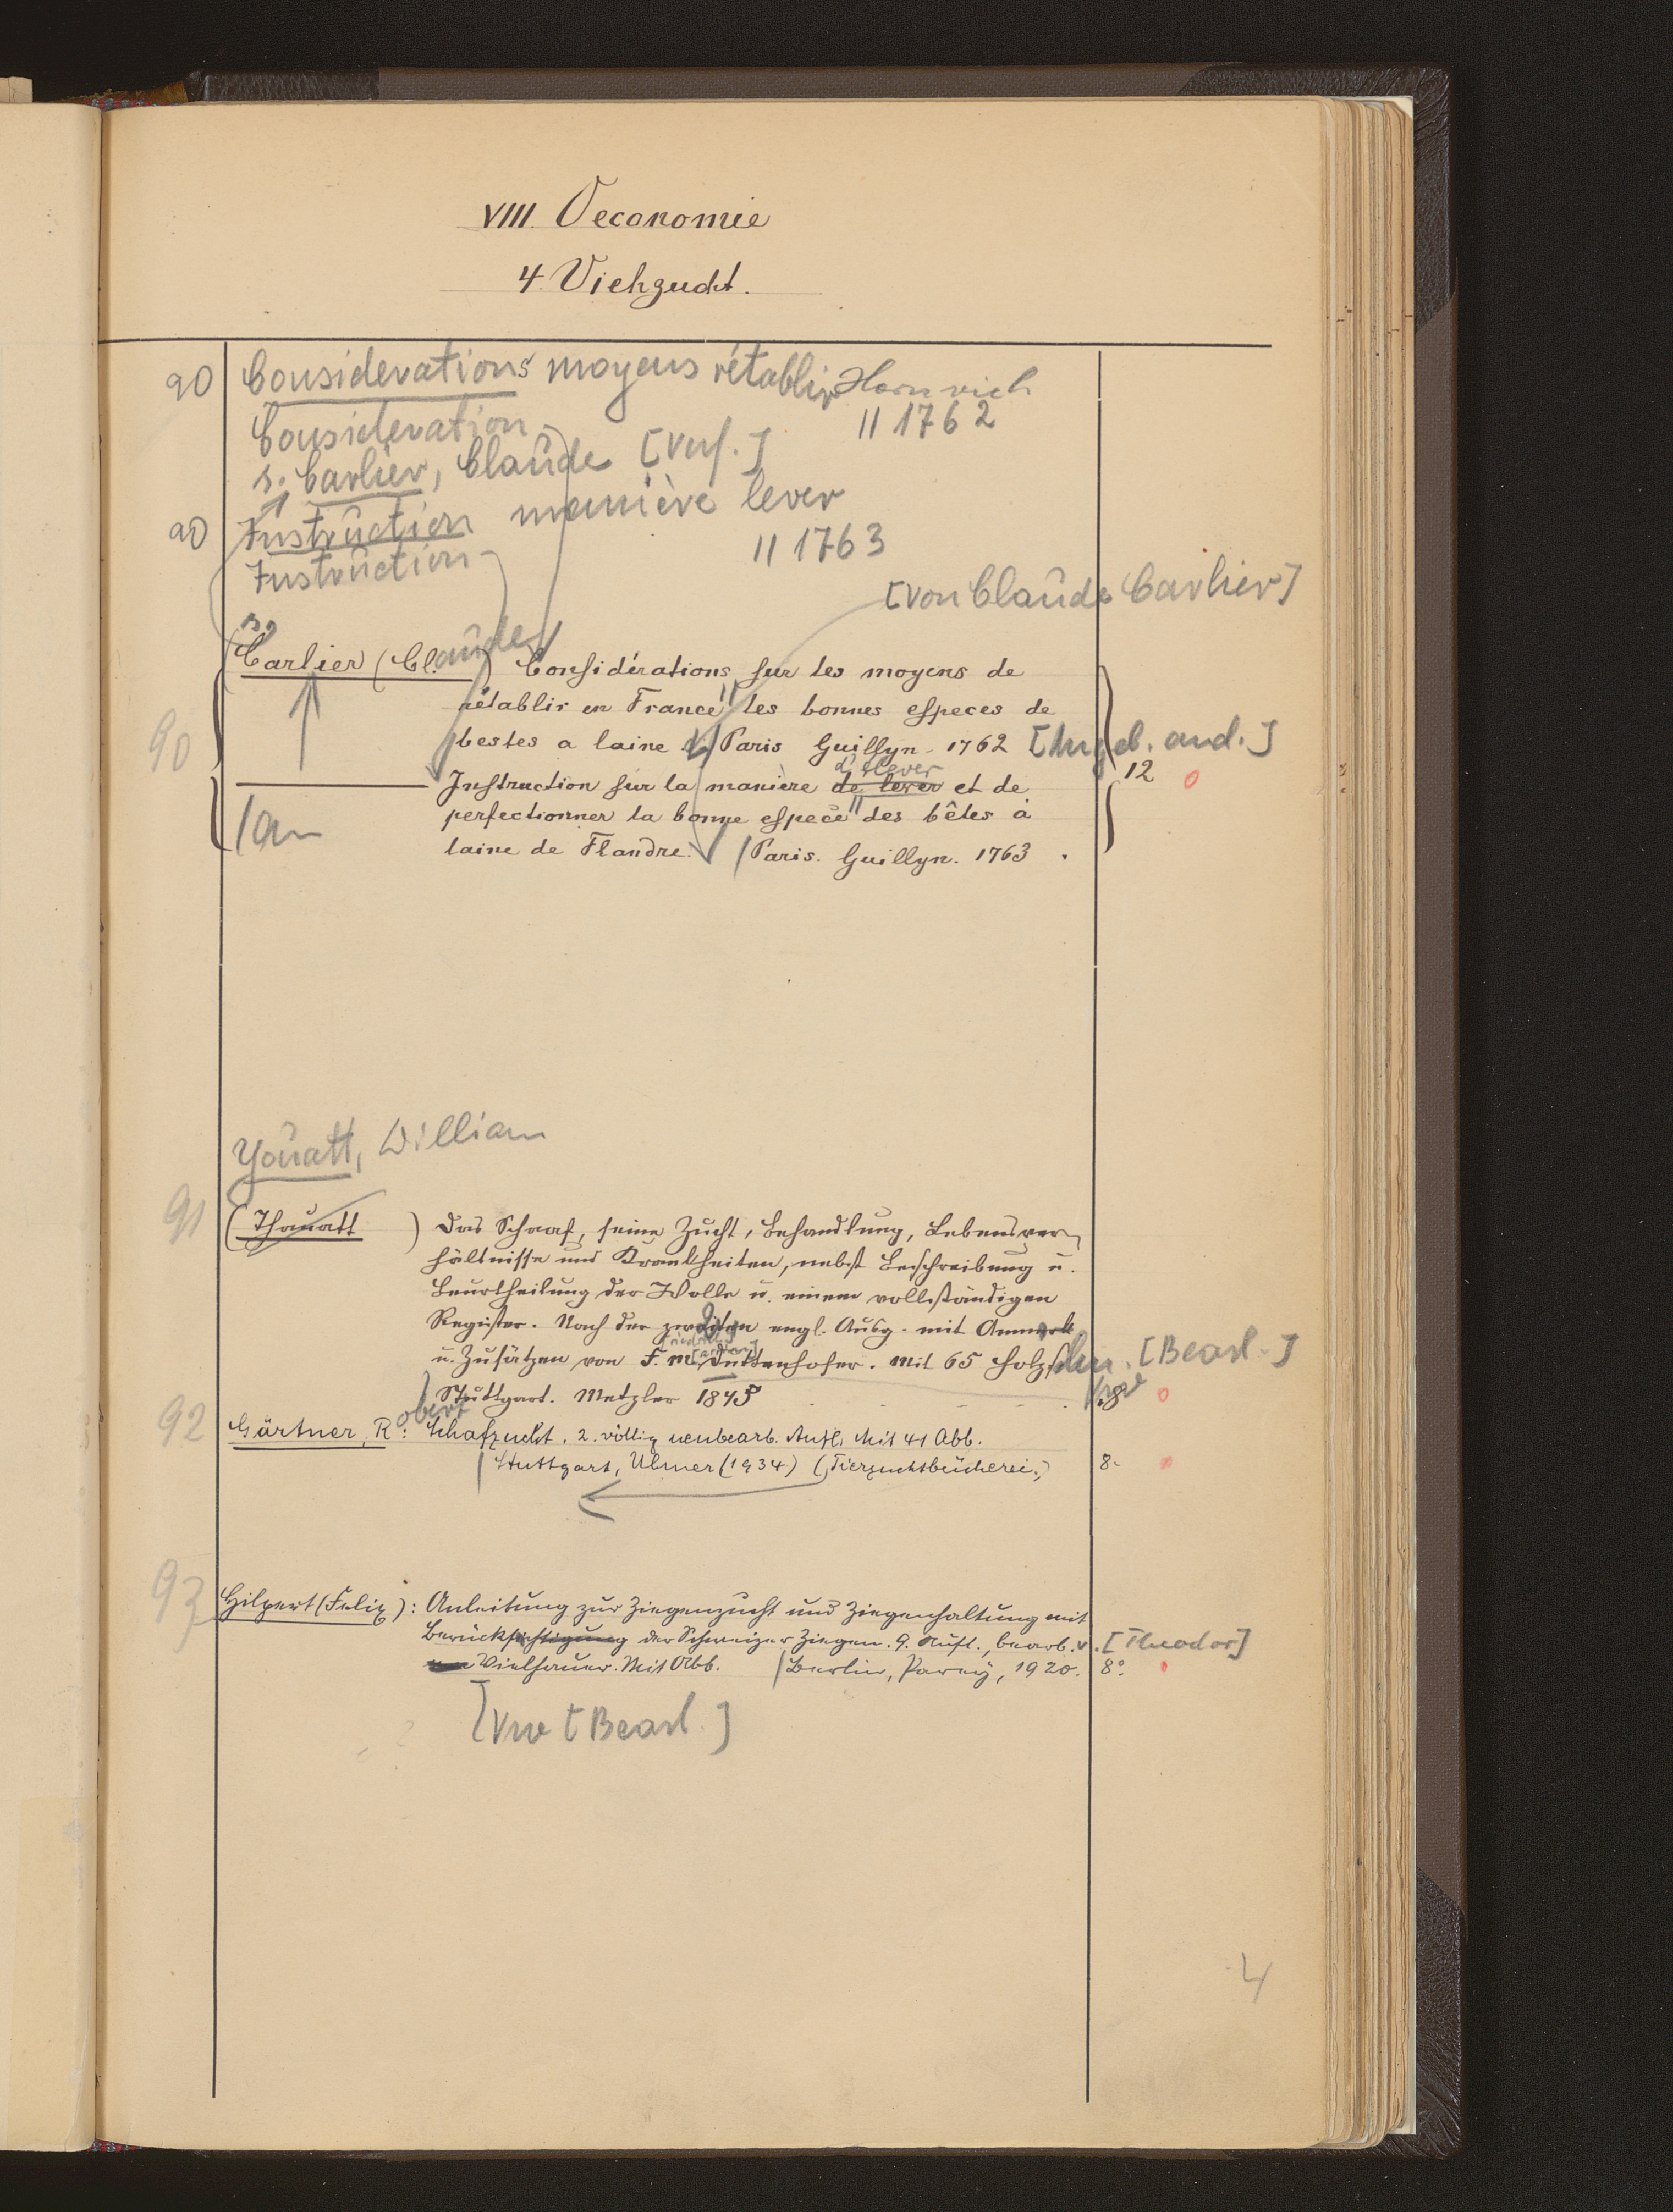 VIII. Oeconomie
4. Viehzucht.
90 Considerations moyens rétablir
Consideration
|| 1762
s. Carlier, Claude [Verf.]
90 Instruction manière lever
|| 1763
Instruction
[von Claude Carlier]
Carlier (Cl.aude) Considérations sur les moyens de
rétablir en France les bonnes especes de
90 bestes a laine Paris Guillyn 1762
12
d'elever
Instruction sur la manière de lever et de
perfectionner la bonne espece des bêtes à
laine de Flandre. Paris. Guillyn. 1763.
Youatt, William
91 (Thouatt) Das Schaaf, seine Zucht, Behandlung, Lebensver-
hältnisse und Krankheiten, nebst Beschreibung u.
Beurtheilung der Wolle u. einem vollständigen
Register. Nach der zweiten engl. Ausg. mit Anmerk
u. Zusätzen von F. M. Duttenhofer. Mit 65 Holzschn. [Bearb.]
Stuttgart. Metzler 1845 8
92 Gärtner, Robert: Schafzucht. 2. völlig neubearb. Aufl. Mit 41 Abb.
Stuttgart, Ulmer (1934) (Tierzuchtbücherei.) 8.
93 Hilpert (Felix): Anleitung zur Ziegenzucht und Ziegenhaltung mit
Berücksichtigung der Schweizer Ziegen. 9. Aufl., bearb. v. [Theodor]
Vielhauer. Mit Abb. Berlin, Parey, 1920. 8°.
[Bearb.]
4